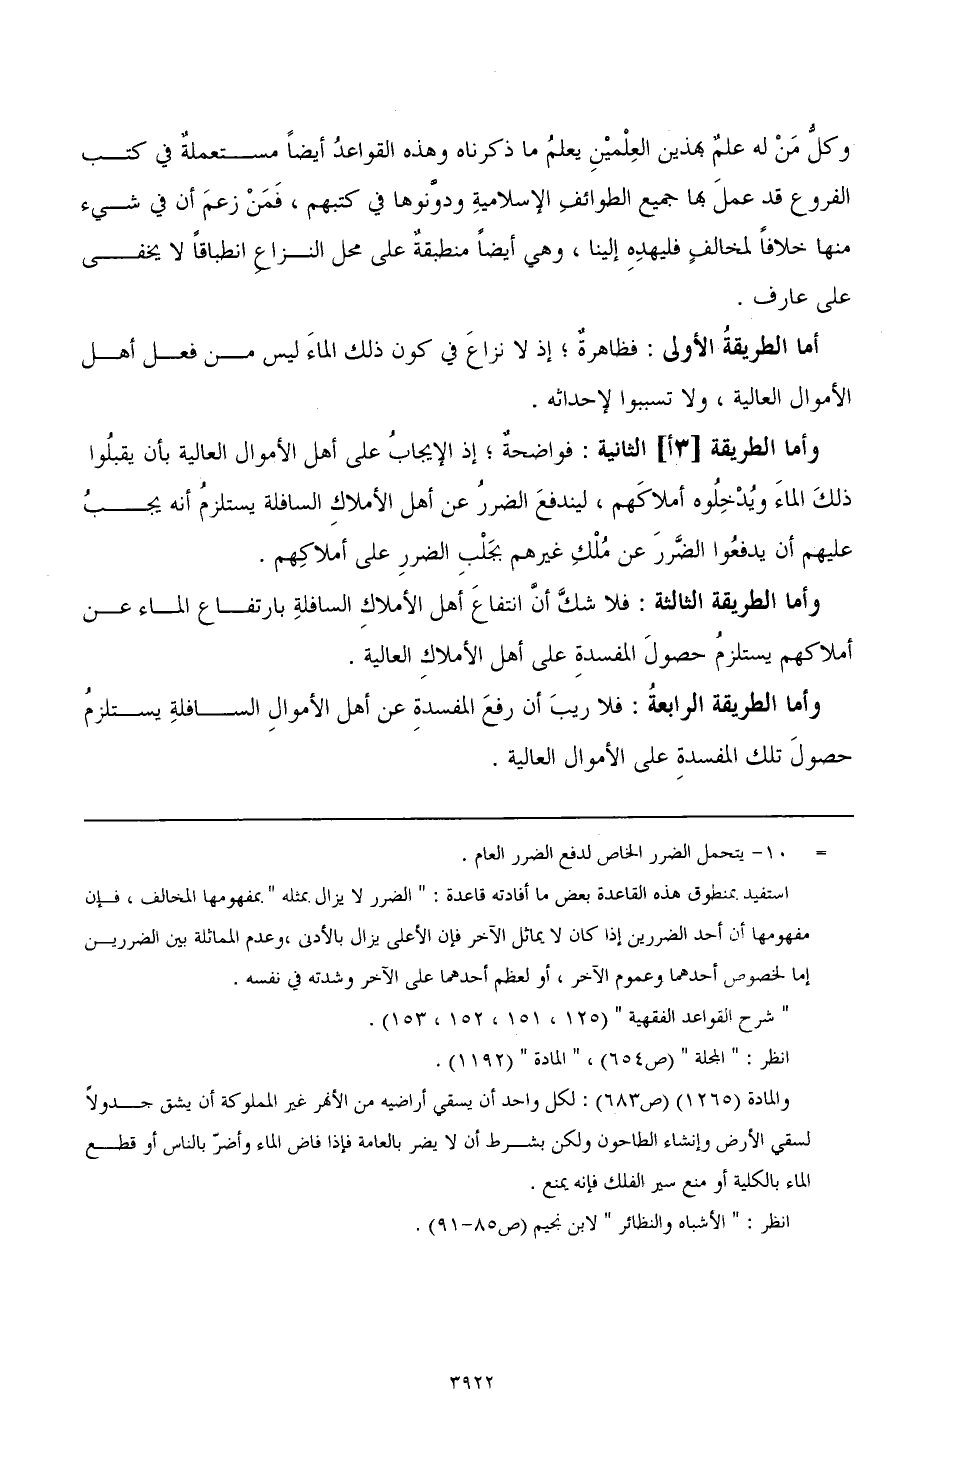 وكلُّ مَنْ له علمٌ بهذين العِلْميْنِ يعلمُ ما ذكرناه وهذه القواعدُ أيضاً مستعملةٌ في كتب
الفروع قد عملَ بها جميع الطوائفِ الإسلاميةِ ودوَّنوها في كتبهم ، فَمَنْ زعمَ أن في شيء
منها خلافاً لمخالفٍ فليهدِهِ إلينا ، وهي أيضاً منطبقةٌ على محل النزاعِ انطباقاً لا يخفى
على عارف .
أما الطريقةُ الأولى : فظاهرةٌ ؛ إذ لا نزاعَ في كون ذلك الماءَ ليس من فعل أهل
الأموال العالية ، ولا تسببوا لإحداثه .
وأما الطريقة [٣أ] الثانية : فواضحةٌ ؛ إذ الإيجابُ على أهل الأموال العالية بأن يقبلُوا
ذلكَ الماءَ ويُدْخِلُوه أملاكَهم ، ليندفعَ الضررُ عن أهل الأملاكِ السافلة يستلزمُ أنه يجبُ
عليهم أن يدفعُوا الضَّررَ عن مُلْكِ غيرهم بجَلْبِ الضررِ على أملاكِهم .
وأما الطريقة الثالثة : فلا شكَّ أنَّ انتفاعَ أهل الأملاكِ السافلةِ بارتفاع الماء عن
أملاكهم يستلزمُ حصولَ المفسدةِ على أهل الأملاكِ العالية .
وأما الطريقة الرابعةُ : فلا ريبَ أن رفعَ المفسدةِ عن أهل الأموالِ السافلةِ يستلزمُ
حصولَ تلك المفسدةِ على الأموال العالية .
= ١٠- يتحمل الضرر الخاص لدفع الضرر العام .
استفيد بمنطوق هذه القاعدة بعض ما أفادته قاعدة : " الضرر لا يزال بمثله " بمفهومها المخالف ، فإن
مفهومها أن أحد الضررين إذا كان لا يماثل الآخر فإن الأعلى يزال بالأدنى ،وعدم المماثلة بين الضررين
إما لخصوص أحدهما وعموم الآخر ، أو لعظم أحدهما على الآخر وشدته في نفسه .
" شرح القواعد الفقهية " (١٢٥ ، ١٥١ ، ١٥٢ ، ١٥٣) .
انظر : " المجلة " (ص٦٥٤) ، " المادة " (١١٩٢) .
والمادة (١٢٦٥) (ص٦٨٣) : لكل واحد أن يسقي أراضيه من الأنهر غير المملوكة أن يشق جدولاً
لسقي الأرض وإنشاء الطاحون ولكن بشرط أن لا يضر بالعامة فإذا فاض الماء وأضرّ بالناس أو قطع
الماء بالكلية أو منع سير الفلك فإنه يمنع .
انظر : " الأشباه والنظائر " لابن نجيم (ص٨٥-٩١) .
٣٩٢٢